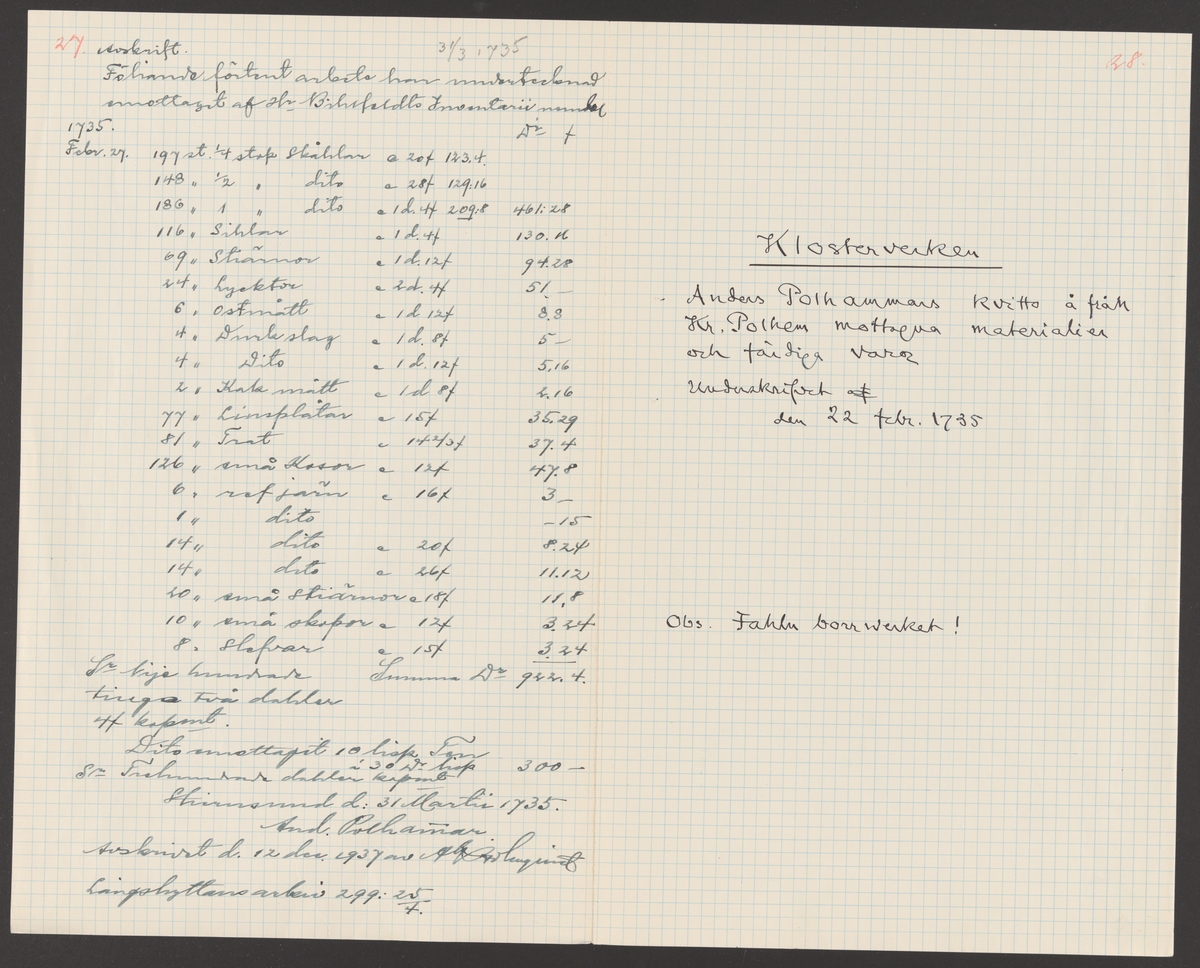 27. Avskrift. 31/3 1735
Föliande förtent arbete har undertecknad
emottagit af Hr Bihrfeldts Inventarii
1735. Dr f
Febr. 27. 197 st. 1/4 stop Skåhlar a 20f 123.4.
148 " 1/2 " dito a 28f 129:16
186 " 1 " dito a 1d.4f 209:8 461:28
116 " Sihlar a 1d.4f 130.16
69 " Stiärnor a 1d.12f 94.28
24 " Lycktor a 2d.4f 51.—
6 " Ostmått a 1d 12f 8.8
4 " Durkslag a 1d.8f 5—
4 " Dito a 1d.12f 5,16
2 " Kak mått a 1d 8f 2.16
77 " Linsplåtar a 15f 35.29
81 " Trat a 14 2/3f 37.4
126 " små Kosor a 12f 47.8
6 " refjärn a 16f 3—
1 " dito —15
14 " dito a 20f 8.24
14 " dito a 26f 11.12
20 " små Stiärnor a 18f 11,8
10 " små skopor a 12f 3.24
8 " Slefvar a 15f 3.24
Sr Nije hundrade Summa Dr 922.4.
tiuga två dahler
4f kopmt.
Dito emottagit 10 lisp. Ten
à 30 Dr lisp 300—
Sr Trehundrade dahler kopmt
Stiernsund d: 31 Martii 1735.
And. Polhamar.
Avskrivet d. 12 dec. 1937 av
Långshyttans arkiv 299: 25/4.
28.
Klosterverken
Anders Polhammars kvitto å från
Kr. Polhem mottagna materialier
och färdiga varor
Underskrifvet
den 22 febr. 1735
Obs. Fahlu borrwerket!